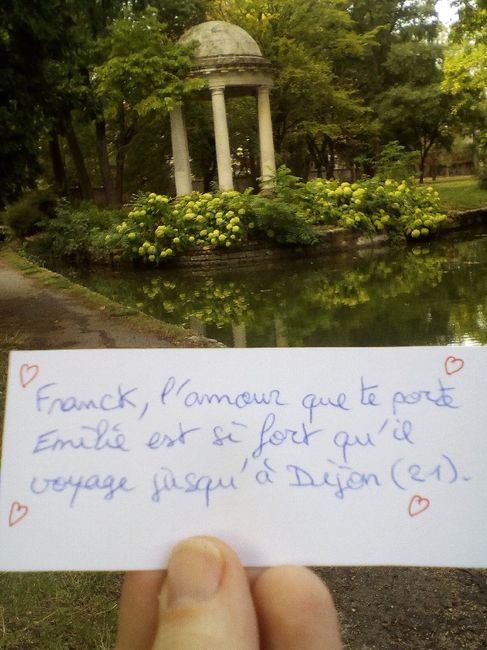 Franck, l'amour que te porte
Emilie est si fort qu'il
voyage jusqu'à Dijon (21).